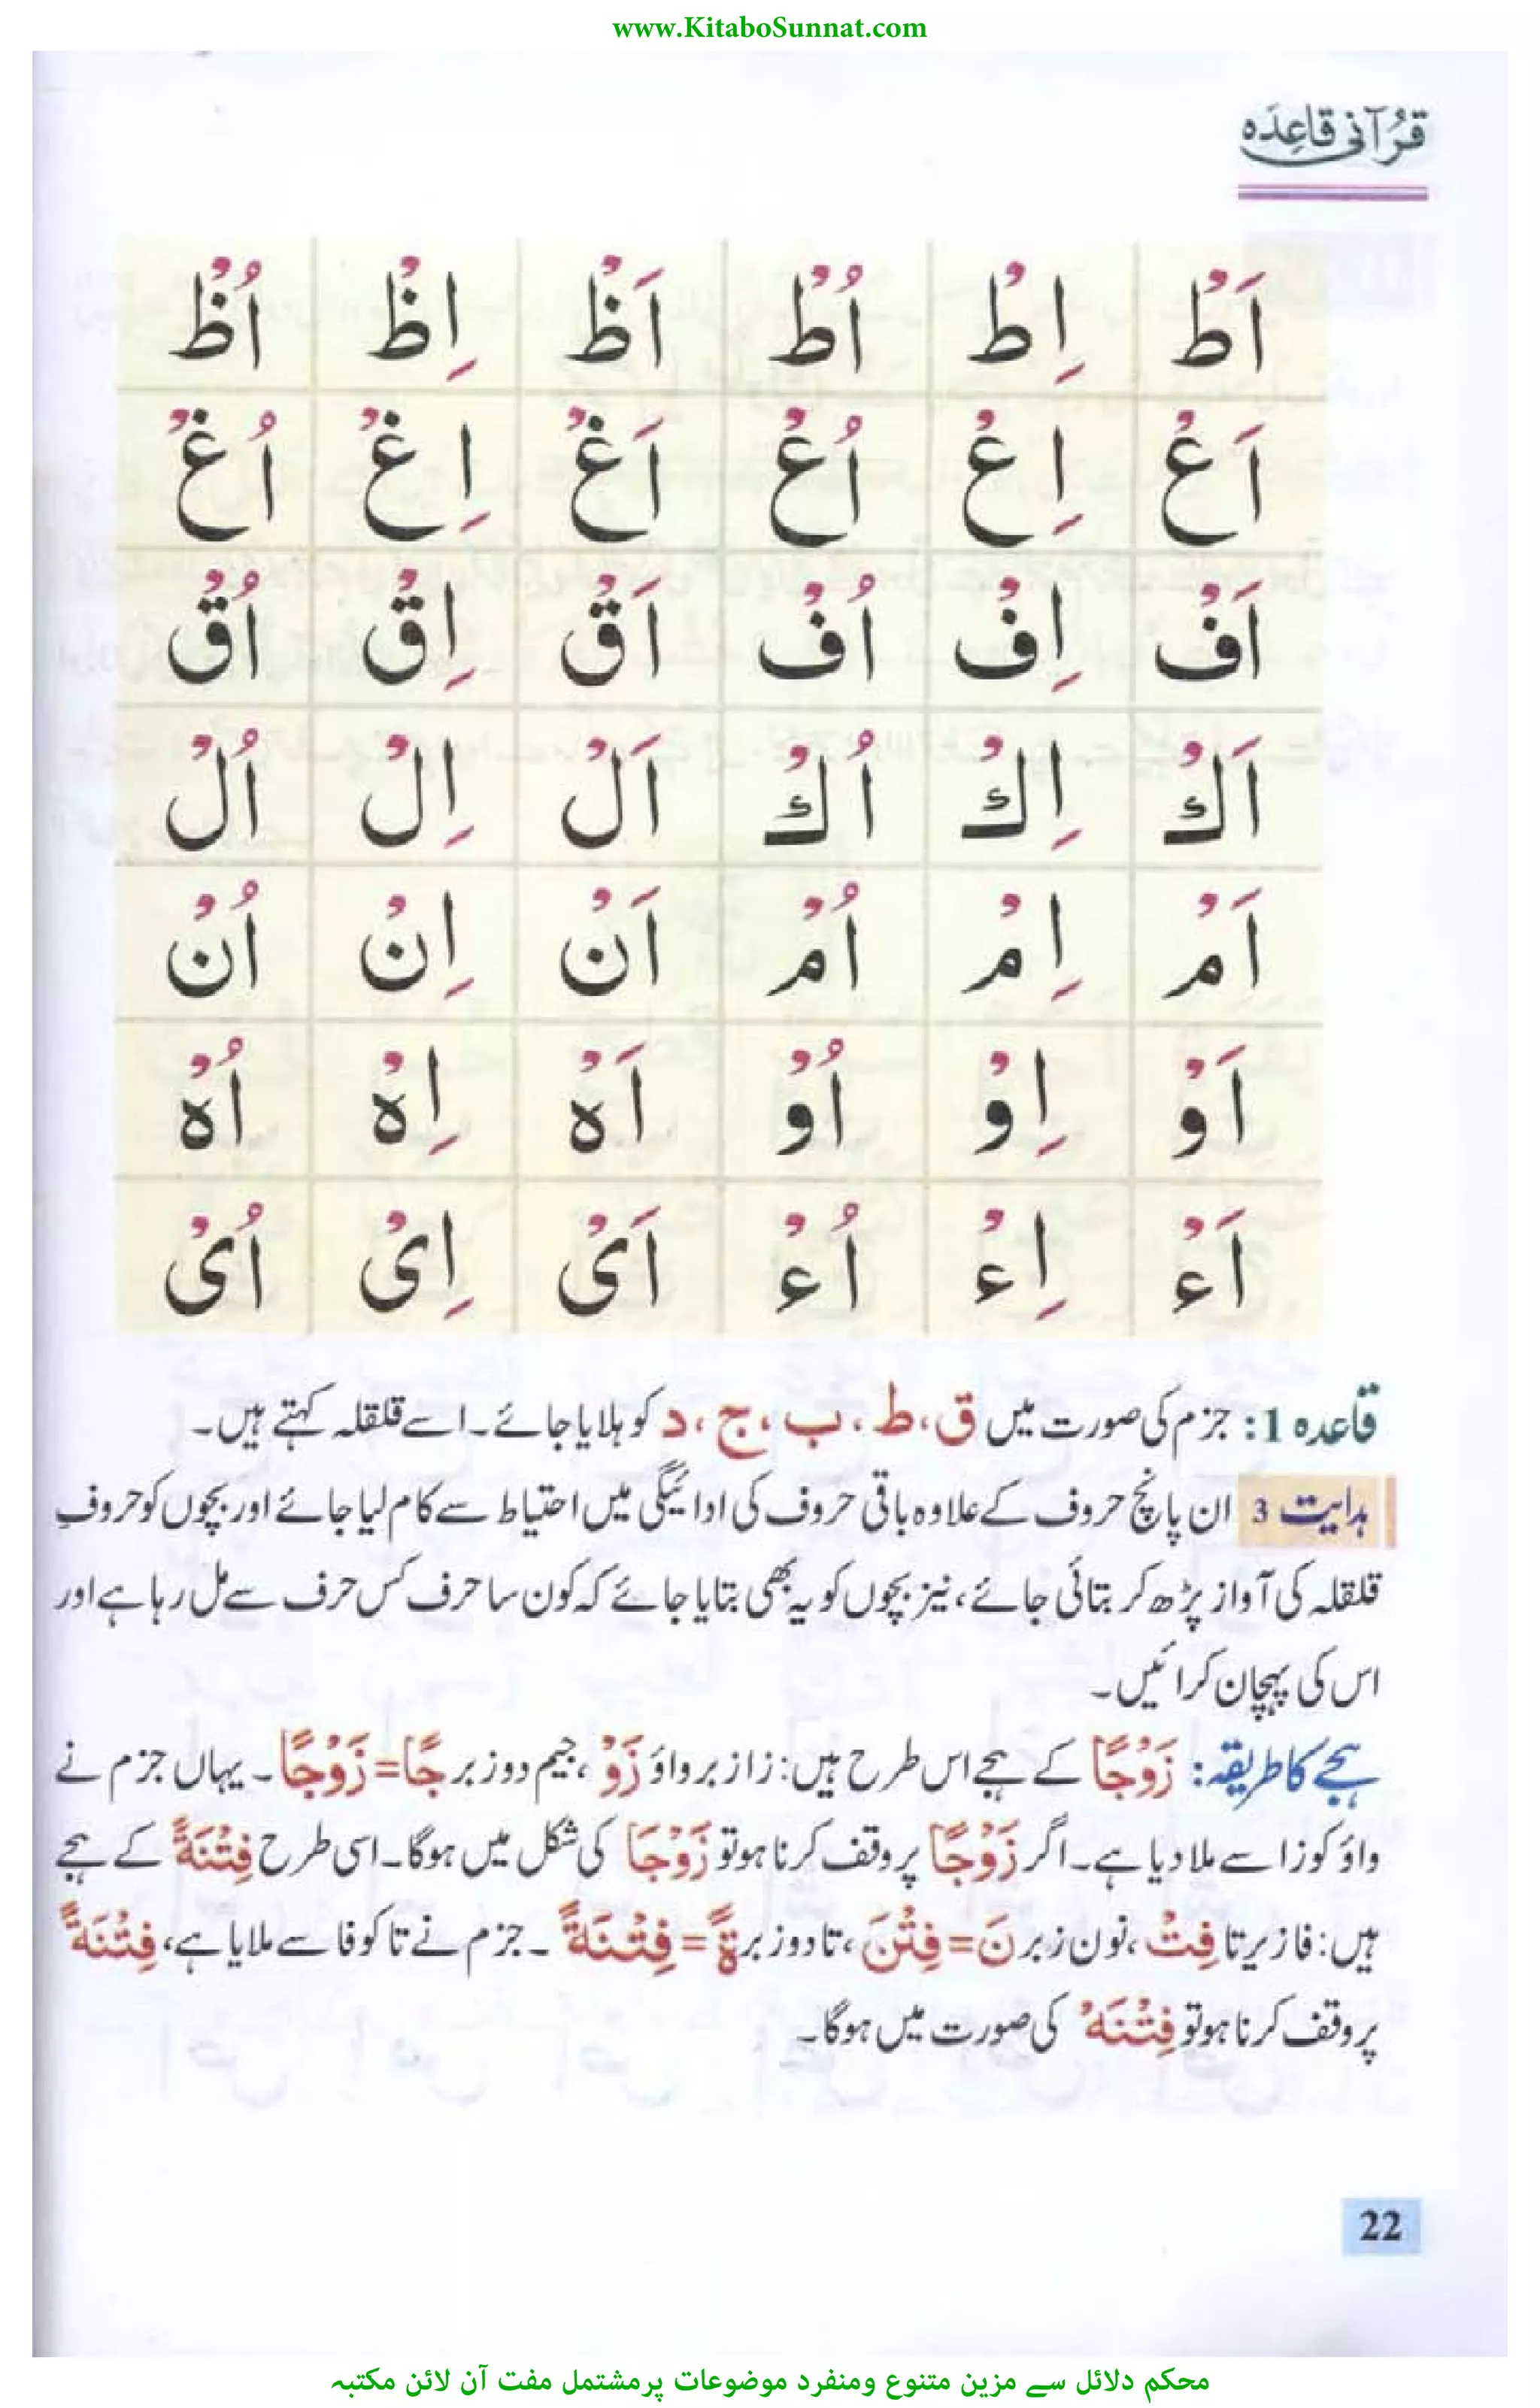 www.KitaboSunnat.com
قُرآنی قاعِدَہ
اَطْ اِطْ اُطْ اَظْ اِظْ اُظْ
اَعْ اِعْ اُعْ اَغْ اِغْ اُغْ
اَفْ اِفْ اُفْ اَقْ اِقْ اُقْ
اَكْ اِكْ اُكْ اَلْ اِلْ اُلْ
اَمْ اِمْ اُمْ اَنْ اِنْ اُنْ
اَوْ اِوْ اُوْ اَهْ اِهْ اُهْ
اَءْ اِءْ اُءْ اَیْ اِیْ اُیْ
قاعدہ 1: جزم کی صورت میں ق، ط، ب، ج، د کو ہلایا جائے۔ اسے قلقلہ کہتے ہیں۔
ہدایت 3 ان پانچ حروف کے علاوہ باقی حروف کی ادائیگی میں احتیاط سے کام لیا جائے اور بچوں کو حروفِ
قلقلہ کی آواز پڑھ کر بتائی جائے، نیز بچوں کو یہ بھی بتایا جائے کہ کون سا حرف کس حرف سے مل رہا ہے اور
اس کی پہچان کرائیں۔
ہجے کا طریقہ: زَوْجًا کے ہجے اس طرح ہیں: زا زبر واؤ زَوْ، جیم دو زبر جًا = زَوْجًا ۔ یہاں جزم نے
واؤ کو زا سے ملا دیا ہے۔ اگر زَوْجًا پر وقف کرنا ہو تو زَوْجَا کی شکل میں ہوگا۔ اسی طرح فِتْنَةً کے ہجے
ہیں: فا زیر تا فِتْ، نون زبر نَ = فِتْنَ، تا دو زبر ةً = فِتْنَةً ۔ جزم نے تا کو فا سے ملایا ہے، فِتْنَةً
پر وقف کرنا ہو تو فِتْنَهْ کی صورت میں ہوگا۔
22
محکم دلائل سے مزین متنوع ومنفرد موضوعات پر مشتمل مفت آن لائن مکتبہ